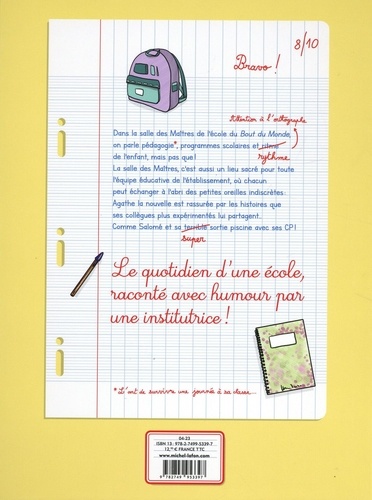 8/10
Bravo !
Attention à l'orthographe
Dans la salle des Maîtres de l'école du Bout du Monde,
on parle pédagogie*, programmes scolaires et ritme
rythme
de l'enfant, mais pas que!
La salle des Maîtres, c'est aussi un lieu sacré pour toute
l'équipe éducative de l'établissement, où chacun
peut échanger à l'abri des petites oreilles indiscrètes.
Agathe la nouvelle est rassurée par les histoires que
ses collègues plus expérimentés lui partagent.
Comme Salomé et sa terrible sortie piscine avec ses CP!
super
Le quotidien d'une école,
raconté avec humour par
une institutrice !
*L'art de survivre une journée à sa classe...
04-23
ISBN 13 : 978-2-7499-5339-7
12,95 € FRANCE TTC
www.michel-lafon.com
9 782749 953397